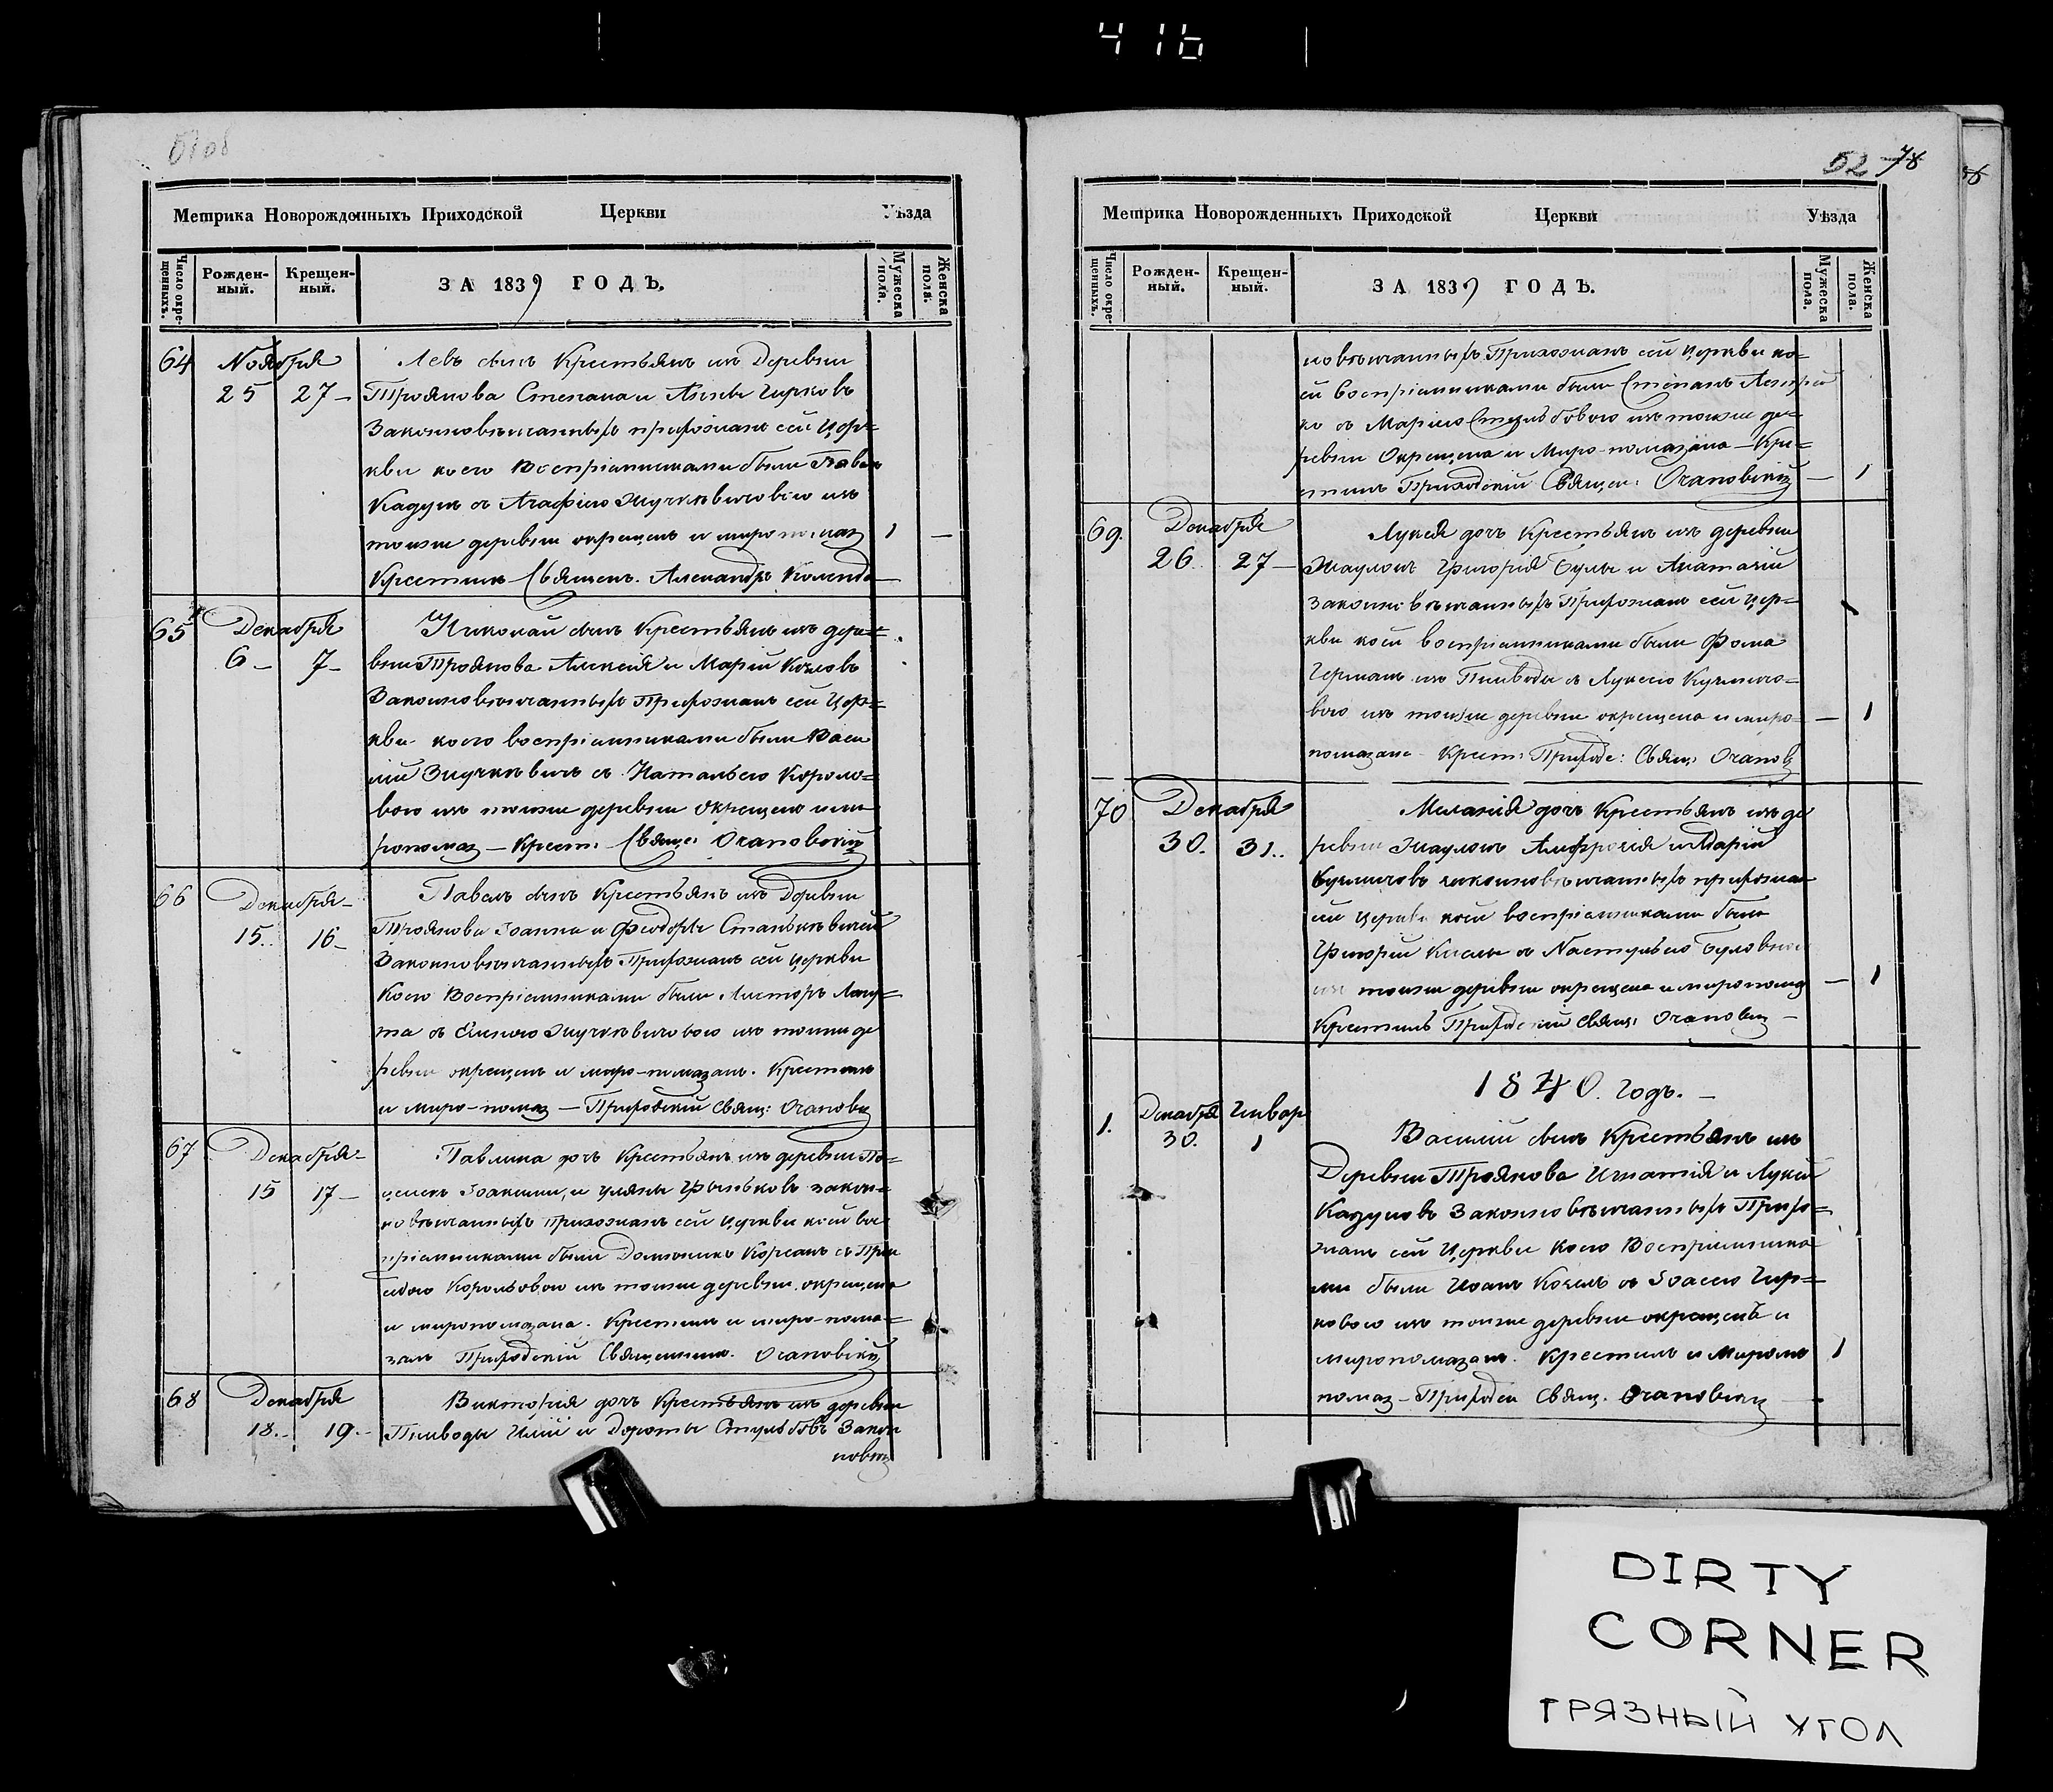 416
52 78
Метрика Новорожденныхъ Приходской Церкви Уѣзда
Число окрещенныхъ.
Рожденный.
Крещенный.
ЗА 1839 ГОДЪ.
Мужеска пола.
Женска пола.
64 Ноября 25 27
Левъ сынъ Крестьянъ изъ Деревни
Троянова Степана и Анны Чирковъ
Законновѣнчанныхъ прихожанъ сей Цер=
кви коего Воспріемниками были Павелъ
Кадукъ съ Агафіею изъ
тойже деревни окрещенъ и миропомаз 1 —
Крестилъ Священ. Александръ Коленда
65 Декабря 6 7
Николай сынъ Крестьянъ изъ дере=
вни Троянова Алексея и Маріи Козловъ
Законновѣнчанныхъ Прихожанъ сей Цер=
кви коего воспріемниками были Васи
лій съ Натальею Королю=
вою изъ тойже деревни окрещенъ и ми
ропомаз — Крест: Свяще: Очаповскій
66 Декабря 15 16
Павелъ сынъ Крестьянъ изъ Деревни
Троянова Іоанна и Феодоры
Законновѣнчанныхъ Прихожанъ сей Церкви
Коего Воспріемниками были
та съ изъ тойже де
ревни окрещенъ и миро-помазанъ. Крестилъ
и миро-помаз — Приходскій Свящ: Очаповск
67 Декабря 15 17
Павлина дочь Крестьянъ изъ деревни По=
Іоакима, и Ульяны Грыньковъ закон=
новѣнчанныхъ прихожанъ сей Церкви коей вос
пріемниками были Доминикъ Корсакъ съ
изъ тойже деревни. окрещена
и миропомазана. Крестилъ и миро-пома=
залъ Приходскій Священникъ. Очаповскій
68 Декабря 18. 19.
Викторія дочь Крестьянъ изъ деревни
Пиловоды Иліи и Дороты Закон
новѣн
Метрика Новорожденныхъ Приходской Церкви Уѣзда
Число окрещенныхъ.
Рожденный.
Крещенный.
ЗА 1839 ГОДЪ.
Мужеска пола.
Женска пола.
новѣнчанныхъ Прихожанъ сей Церкви ко=
ей Воспріемниками были Степанъ
съ Маріею изъ тойже де=
ревни Окрещена и Миро-помазана — Кре=
стилъ Приходскій Священ: Очаповскій — 1
69. Декабря 26 27
Лукея дочь Крестьянъ изъ деревни
Григорія Булы и Анатазіи
законновѣнчанныхъ Прихожанъ сей Цер=
кви коей воспріемниками были Фома
Германъ изъ Пиловоды съ Лукею
вою изъ тойже деревни окрещена и миро= — 1
помазана — Крест: Приходс: Свящ: Очаповс
70 Декабря 30. 31..
Меланія дочь Крестьянъ изъ де
ревни и Маріи
законновѣнчанныхъ прихожа
сей Церкви коей воспріемниками были
Григорій съ
изъ тойже деревни окрещена и миропомаз — 1
Крестилъ Приходскій Свящ: Очаповск —
1840. годъ. —
1. Декабря 30. Январ 1
Василій сынъ Крестьянъ изъ
Деревни Троянова Игнатія и Лукіи
Кадуковъ Законновѣнчанныхъ Прихо=
жанъ сей Церкви коего Воспріемника
ми были Иоанъ Козелъ съ Чир=
ковою изъ тойже деревни окрещенъ и
миропомазанъ. Крестилъ и Миромъ 1
помаз — Приходск Свящ. Очаповскій
DIRTY
CORNER
ГРЯЗНЫЙ УГОЛ